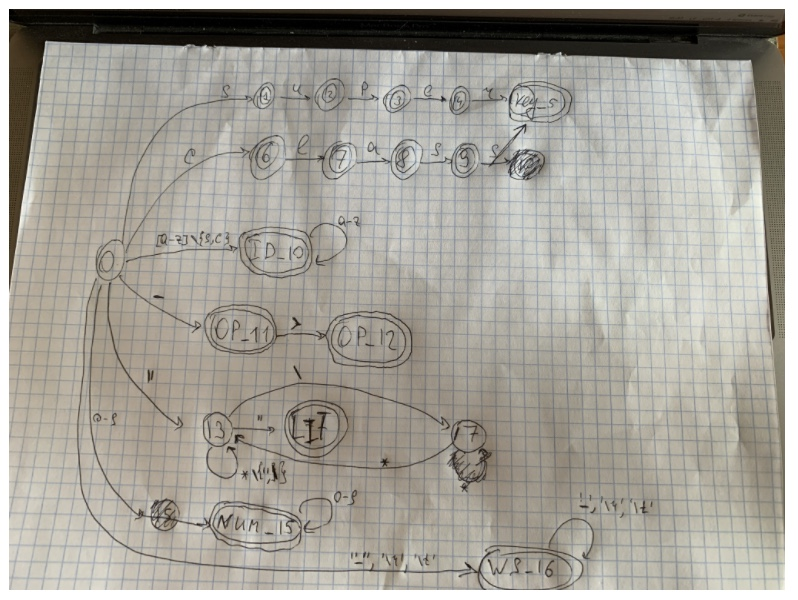 s 1 u 2 p 3 e 4 r Key_5
c 6 l 7 a 8 s 9 s
[a-z]\{s,c} ID_10 a-z
0
- OP_11 > OP_12
\
" 13 " LIT 17
*\{",\} * *
0-9
NUM_15 0-9
WS_16